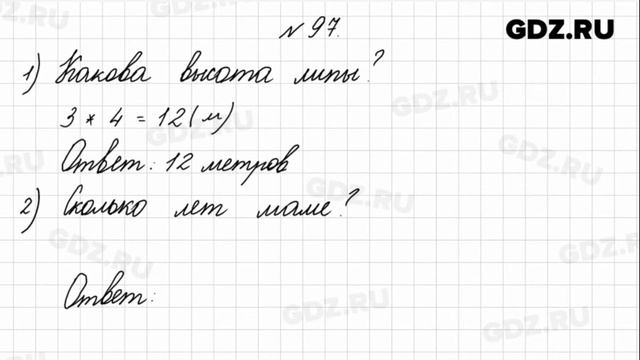 № 97.
GDZ.RU
1) Какова высота липы?
3 * 4 = 12 (м)
Ответ: 12 метров
2) Сколько лет маме?
Ответ:
GDZ.RU
GDZ.RU
GDZ.RU
GDZ.RU
GDZ.RU
GDZ.RU
GDZ.RU
GDZ.RU